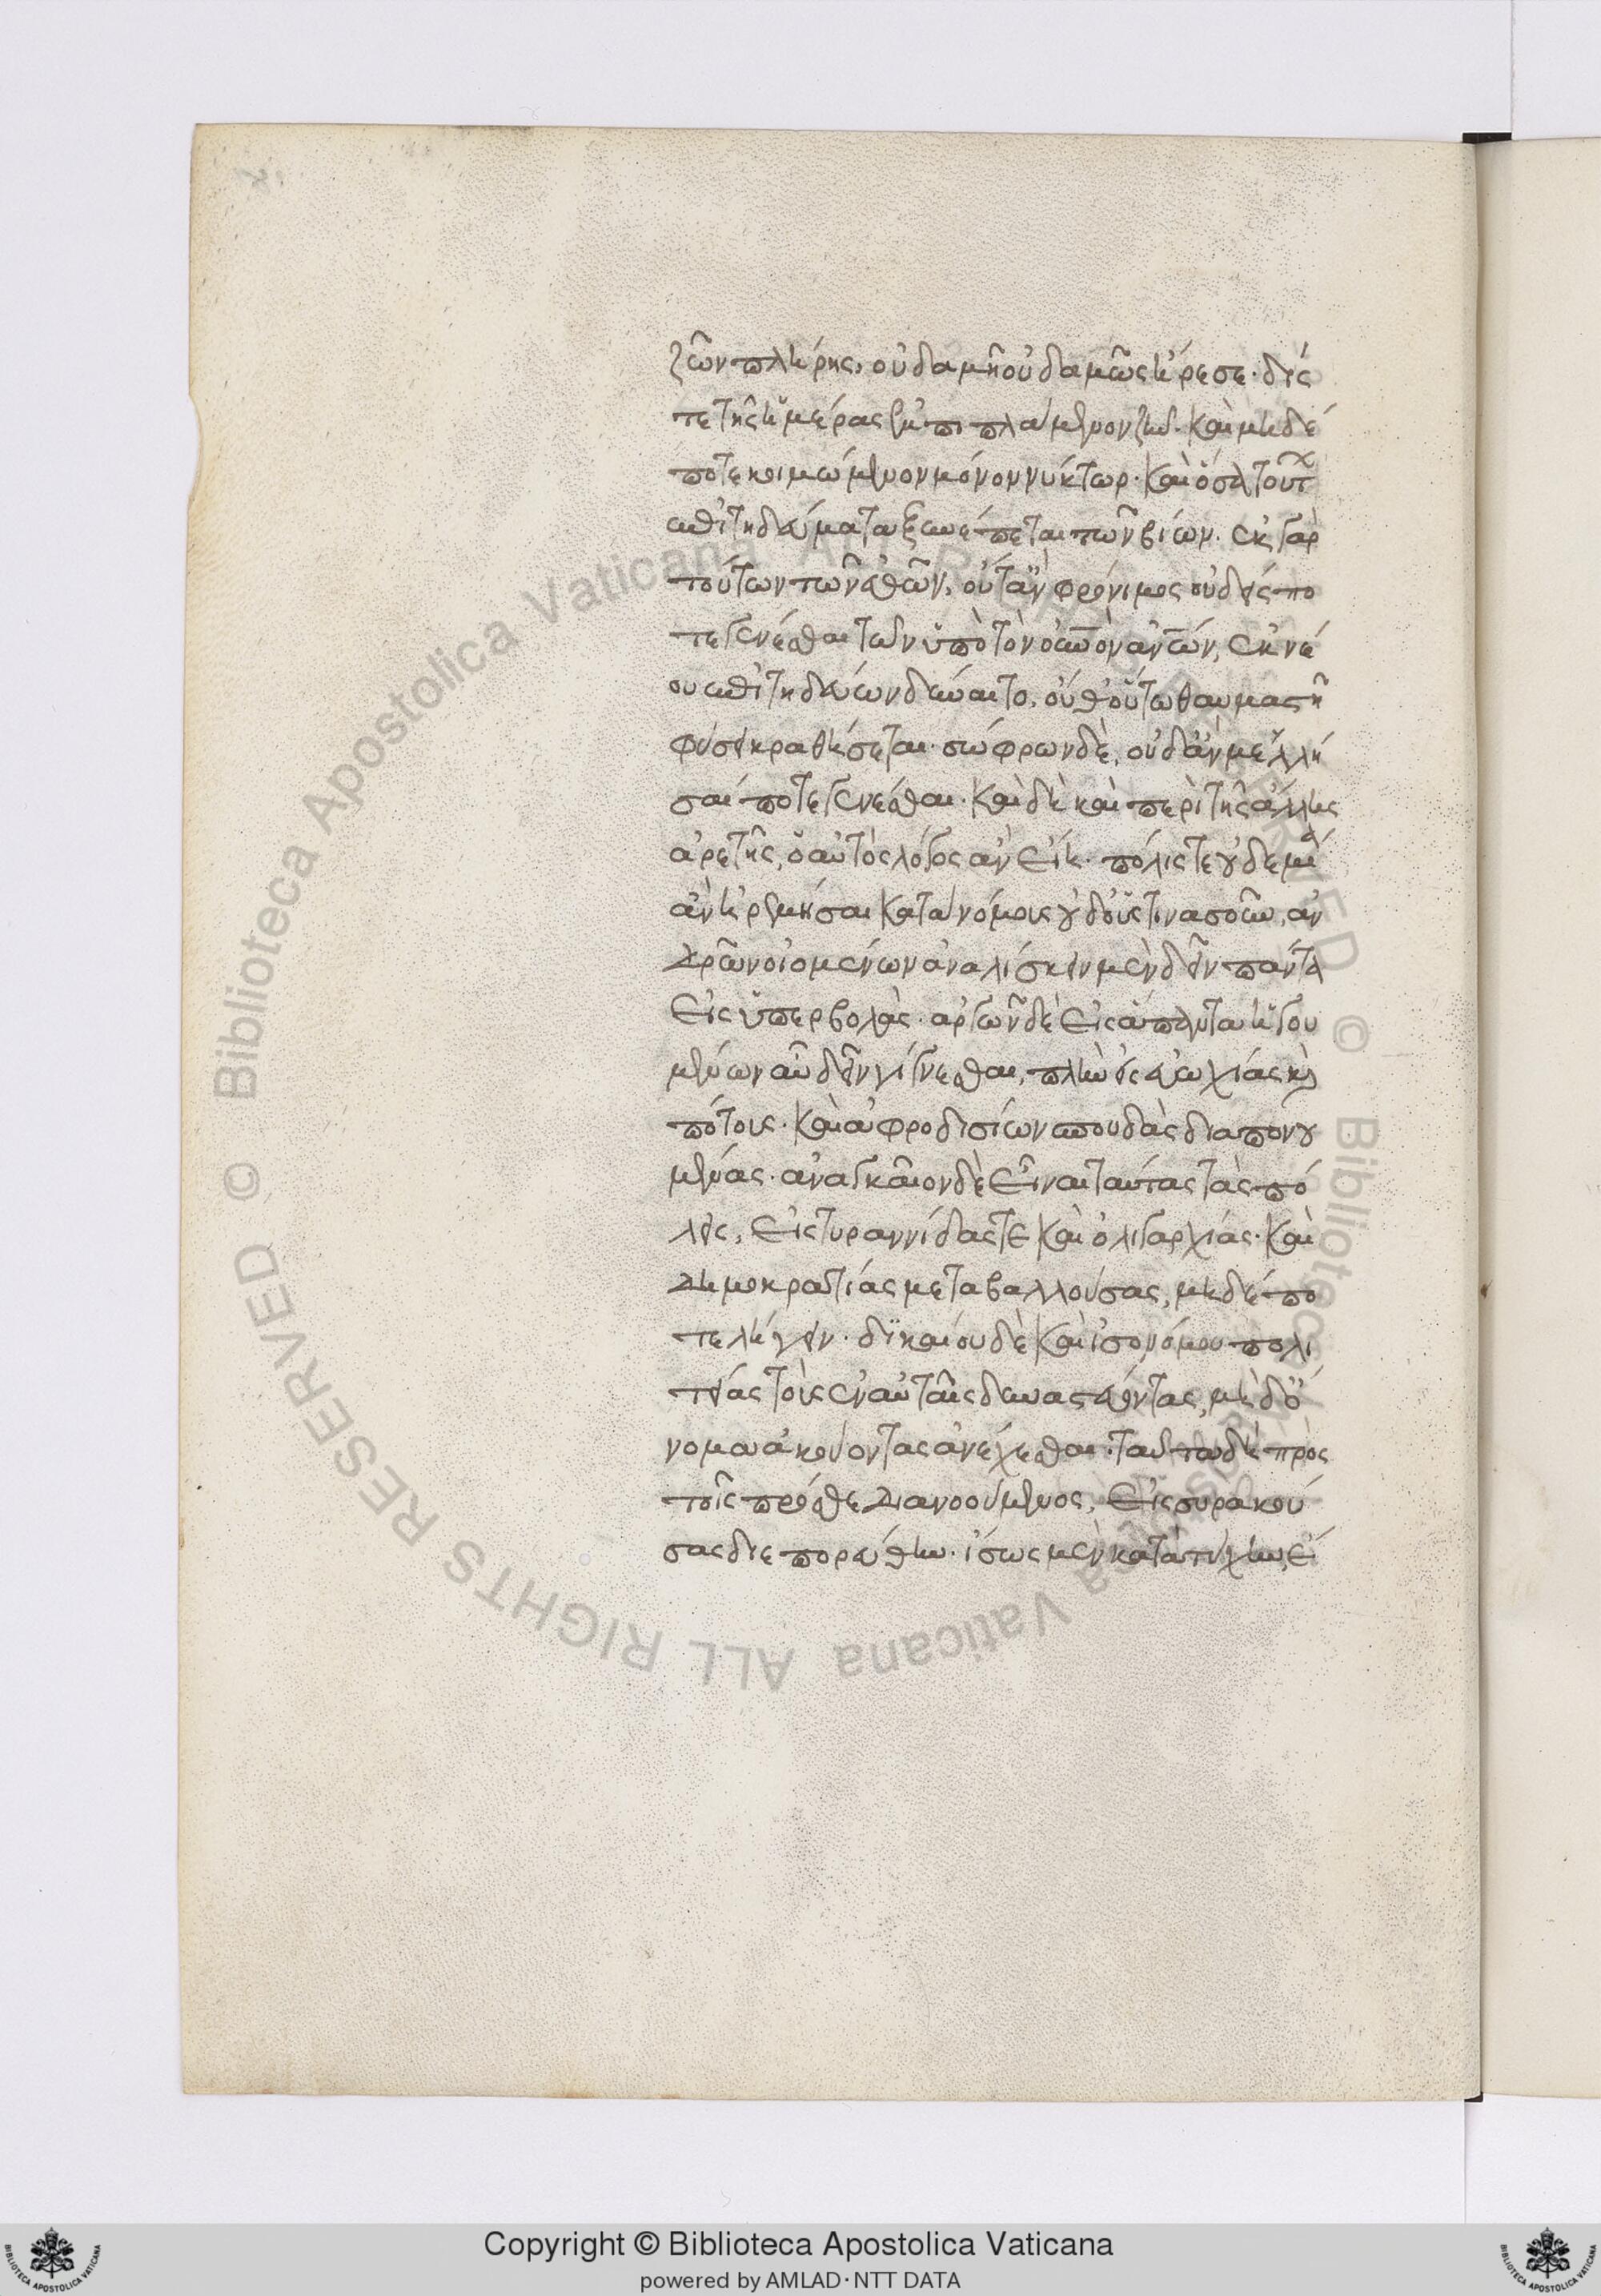 ζῶν πλήρης, οὐδαμῆ οὐδαμῶς ἤρεσε· δίς
τε τῆς ἡμέρας ἐμπιπλάμενον ζῆν· καὶ μηδέ
ποτε κοιμώμενον μόνον νύκτωρ· καὶ ὅσα τούτῳ
ἐπιτηδεύματα ξυνέπεται τῶν βίων· ἐκ γὰρ
τούτων τῶν ἐθῶν, οὔτ' ἂν φρόνιμος οὐδείς πο
τε γενέσθαι τῶν ὑπὸ τὸν οὐρανὸν ἀνῶν, ἐκ νέ
ου ἐπιτηδεύων δύναιτο, οὐχ οὕτω θαυμαστῆ
φύσει κραθήσεται· σώφρων δὲ, οὐδ' ἂν μελλή
σαι ποτὲ γενέσθαι· καὶ δὴ καὶ περὶ τῆς ἄλλης
ἀρετῆς, ὁ αὐτὸς λόγος ἂν εἴη· πόλις τε οὐδεμία
ἂν ἠρεμήσαι κατὰ νόμους οὐδ' οὕς τινας οὖν, ἀν
δρῶν οἰομένων ἀναλίσκειν μὲν δεῖν πάντα
εἰς ὑπερβολὰς· ἀργῶν δὲ εἰς ἅπαντα ἡγου
μένων αὖ δεῖν γίγνεσθαι, πλὴν ἐς εὐωχίας καὶ
πότους· καὶ ἀφροδισίων σπουδὰς διαπονου
μένας· ἀναγκαῖον δὲ εἶναι ταύτας τὰς πό
λεις, εἰς τυραννίδας τε καὶ ὀλιγαρχίας· καὶ
δημοκρατίας μεταβαλλούσας, μηδέπο
τε λήγειν· δικαίου δὲ καὶ ἰσονόμου πολι
τείας τοὺς ἐν αὐταῖς δυναστεύοντας, μηδ' ὄ
νομα ἀκούοντας ἀνέχεσθαι· ταῦτα δὴ πρὸς
τοῖς πρόσθε διανοούμενος, εἰς συρακού
σας διεπορεύθην· ἴσως μὲν κατὰ τύχην, εἰ
Copyright © Biblioteca Apostolica Vaticana
powered by AMLAD·NTT DATA